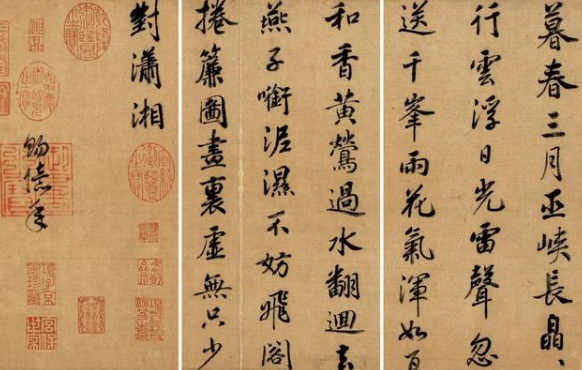 暮春三月巫峽長晶〻
行雲浮日光雷聲忽
送千峯雨花氣渾如百
和香黄鶯過水翻迴去
燕子啣泥濕不妨飛閣
捲簾圖畫裏虛無只少
對瀟湘
賜億年